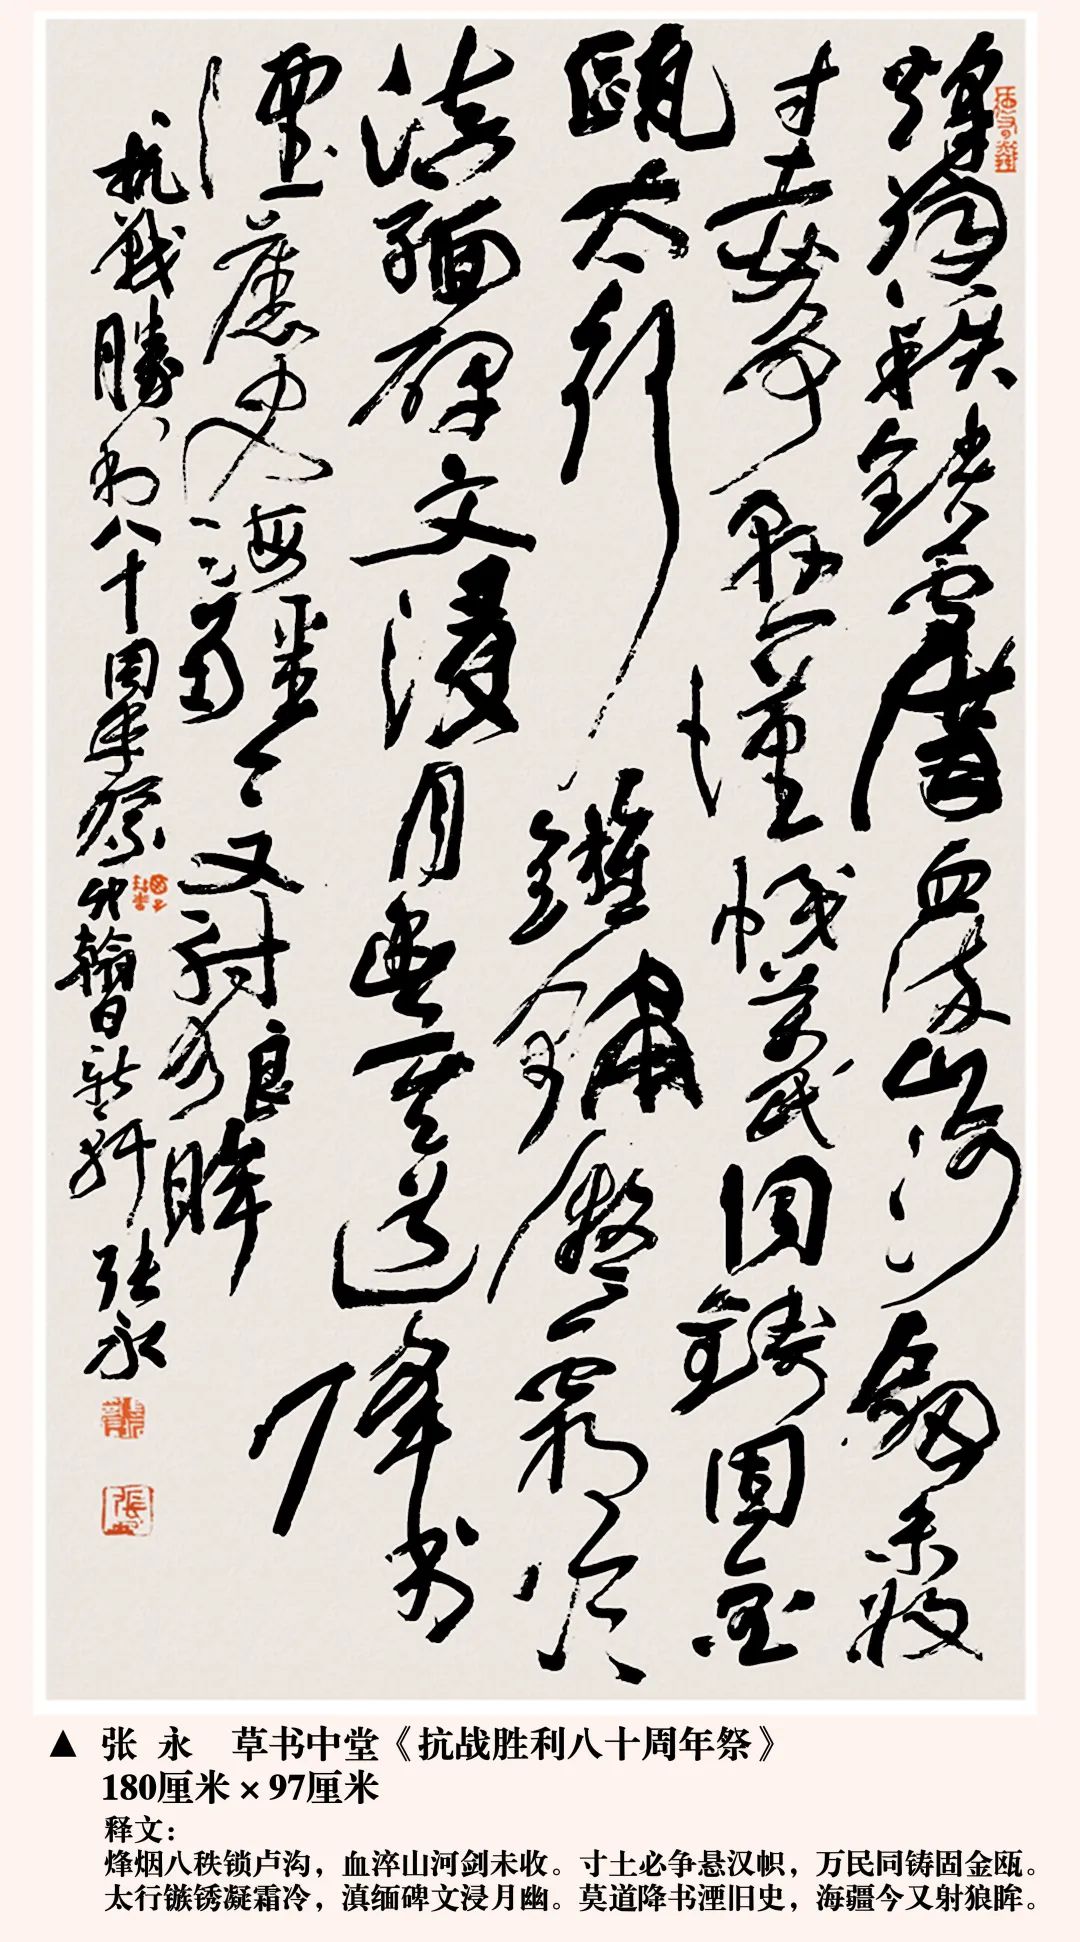 烽烟八秩锁卢沟血淬山河剑未收
寸土必争悬汉帜万民同铸固金
瓯太行镞锈凝霜冷
滇缅碑文浸月幽莫道降书
湮旧史海疆今又射狼眸
抗战胜利八十周年祭 张永
▲ 张 永 草书中堂《抗战胜利八十周年祭》
180厘米×97厘米
释文：
烽烟八秩锁卢沟，血淬山河剑未收。寸土必争悬汉帜，万民同铸固金瓯。
太行镞锈凝霜冷，滇缅碑文浸月幽。莫道降书湮旧史，海疆今又射狼眸。